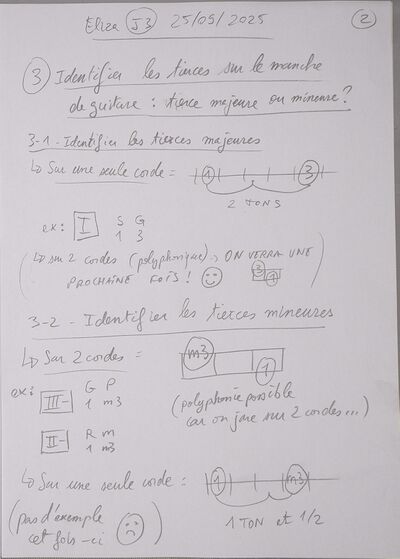 Eliza J3 25/05/2025 2
3 Identifier les tierces sur le manche
de guitare : tierce majeure ou mineure?
3-1- Identifier les tierces majeures
↳ Sur une seule corde = 1 3
2 TONS
ex: I S G
1 3
(↳ sur 2 cordes (polyphonique): ON VERRA UNE
PROCHAINE FOIS! ☺ 3 1 )
3-2 - Identifier les tierces mineures
↳ Sur 2 cordes = m3 1
ex: III- G P
1 m3
(polyphonie possible
car on joue sur 2 cordes...)
II- R m
1 m3
↳ Sur une seule corde = 1 m3
1 TON et 1/2
(pas d'exemple
cet fois-ci ☹)